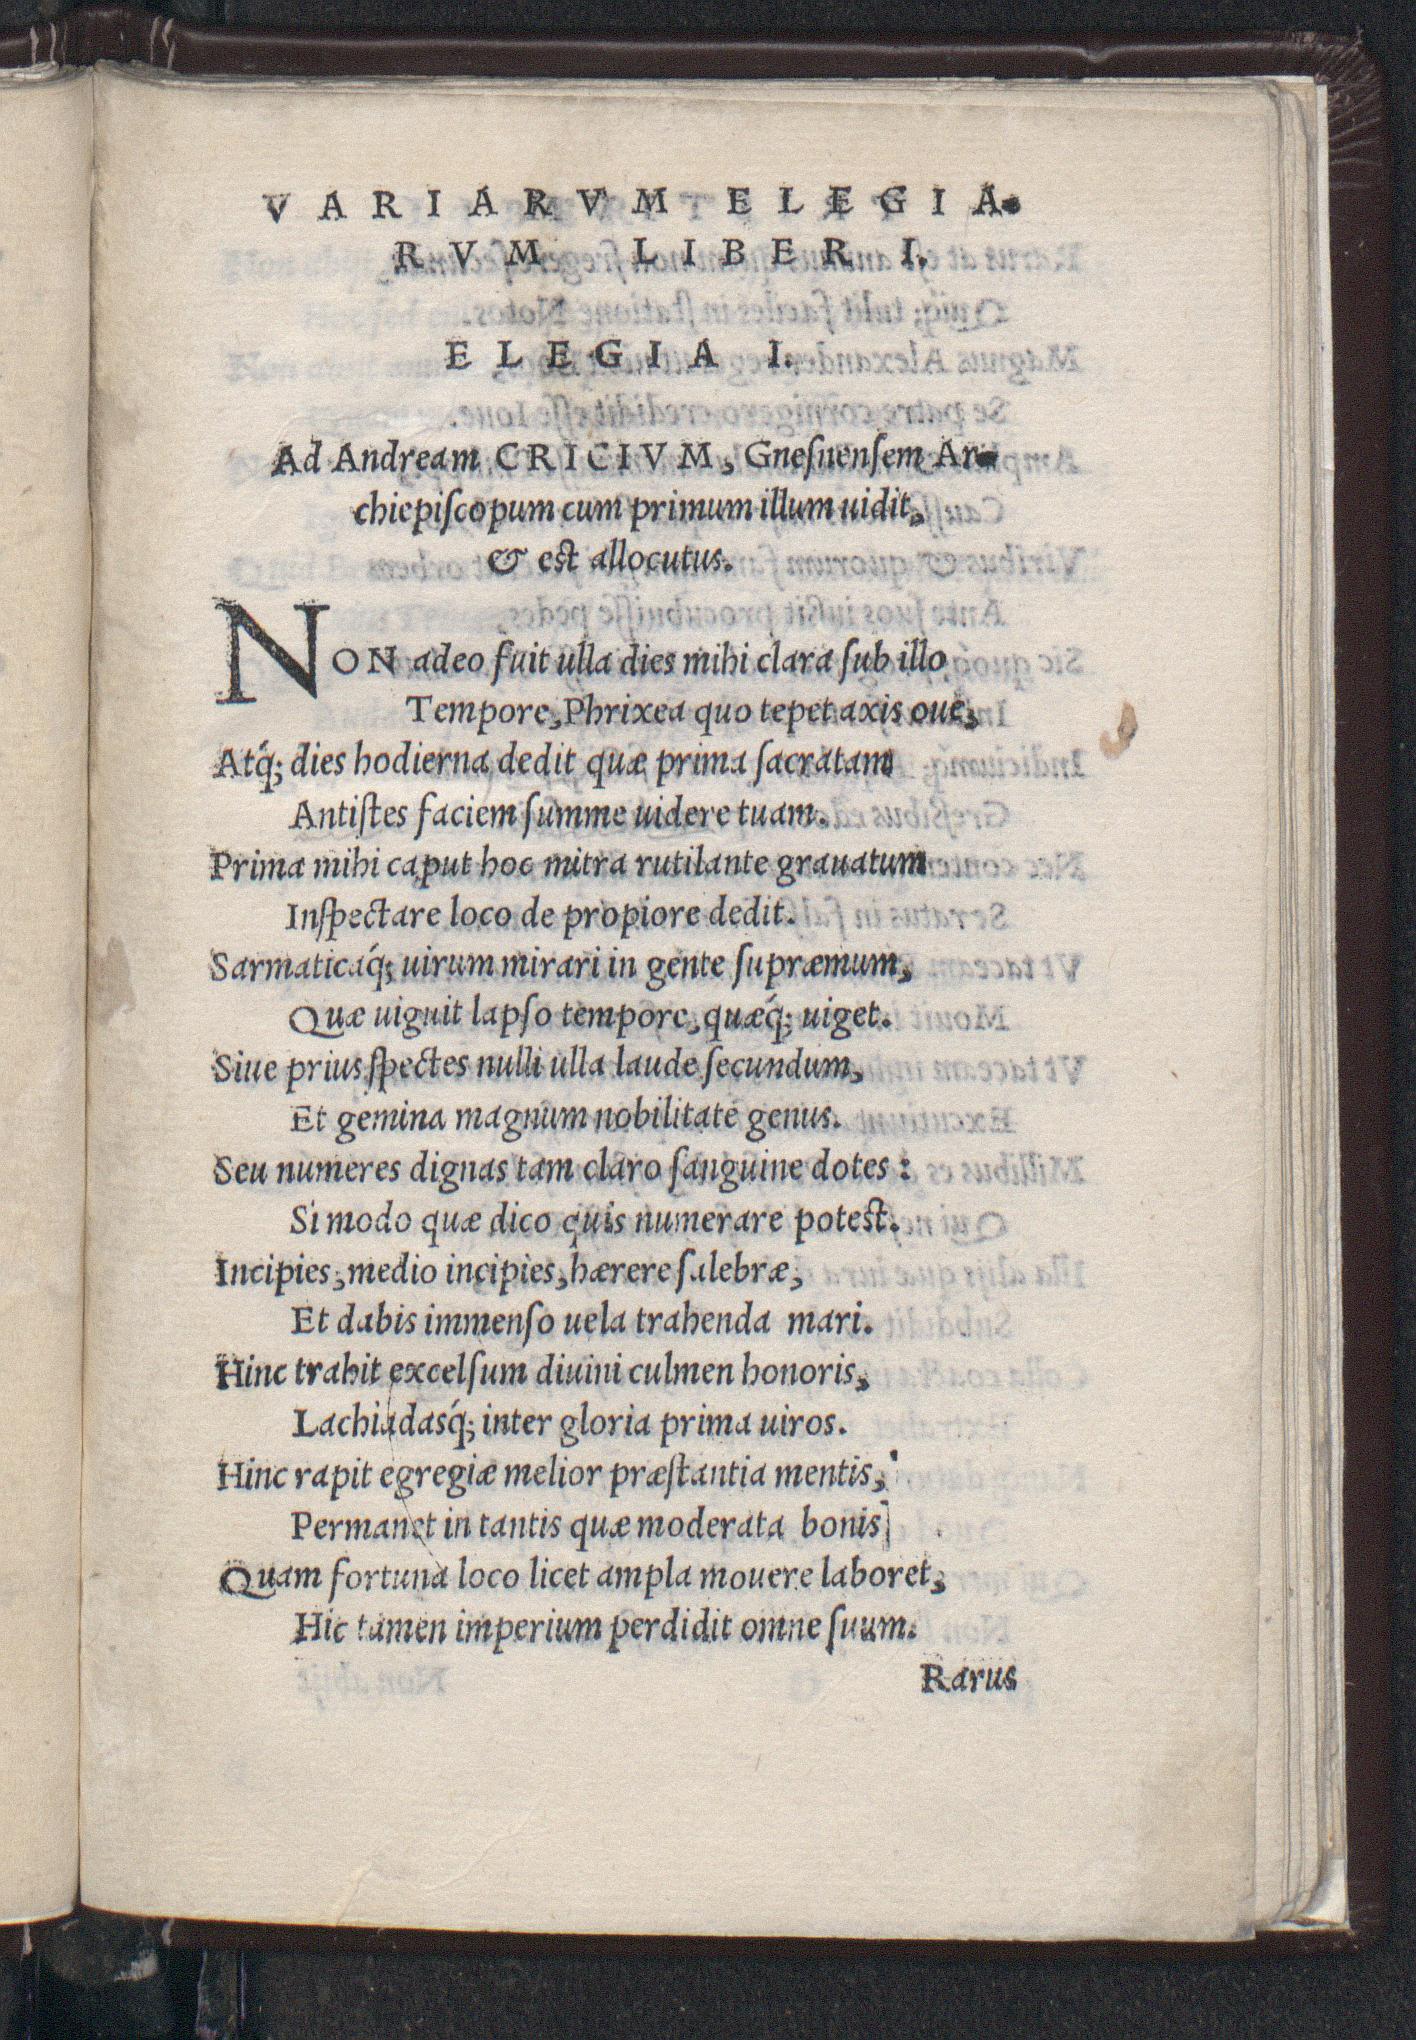 VARIARVM ELEGIA-
RVM LIBER I.
ELEGIA I.
Ad Andream CRICIVM, Gneſnenſem Ar-
chiepiſcopum cum primum illum uidit,
& est allocutus.
NON adeo fuit ulla dies mihi clara ſub illo
Tempore, Phrixea quo tepet axis oue,
Atq́; dies hodierna dedit quæ prima ſacratam
Antiſtes faciem ſumme uidere tuam.
Prima mihi caput hoc mitra rutilante grauatum
Inſpectare loco de propiore dedit.
Sarmaticaq́; uirum mirari in gente ſupræmum,
Quæ uiguit lapſo tempore, quæq́; uiget.
Siue prius ſpectes nulli ulla laude ſecundum,
Et gemina magnum nobilitate genus.
Seu numeres dignas tam claro ſanguine dotes:
Si modo quæ dico quis numerare potest.
Incipies, medio incipies, hærere ſalebræ,
Et dabis immenſo uela trahenda mari.
Hinc trahit excelſum diuini culmen honoris,
Lachiadasq́; inter gloria prima uiros.
Hinc rapit egregiæ melior præſtantia mentis,
Permanet in tantis quæ moderata bonis
Quam fortuna loco licet ampla mouere laboret,
Hic tamen imperium perdidit omne ſuum.
Rarus